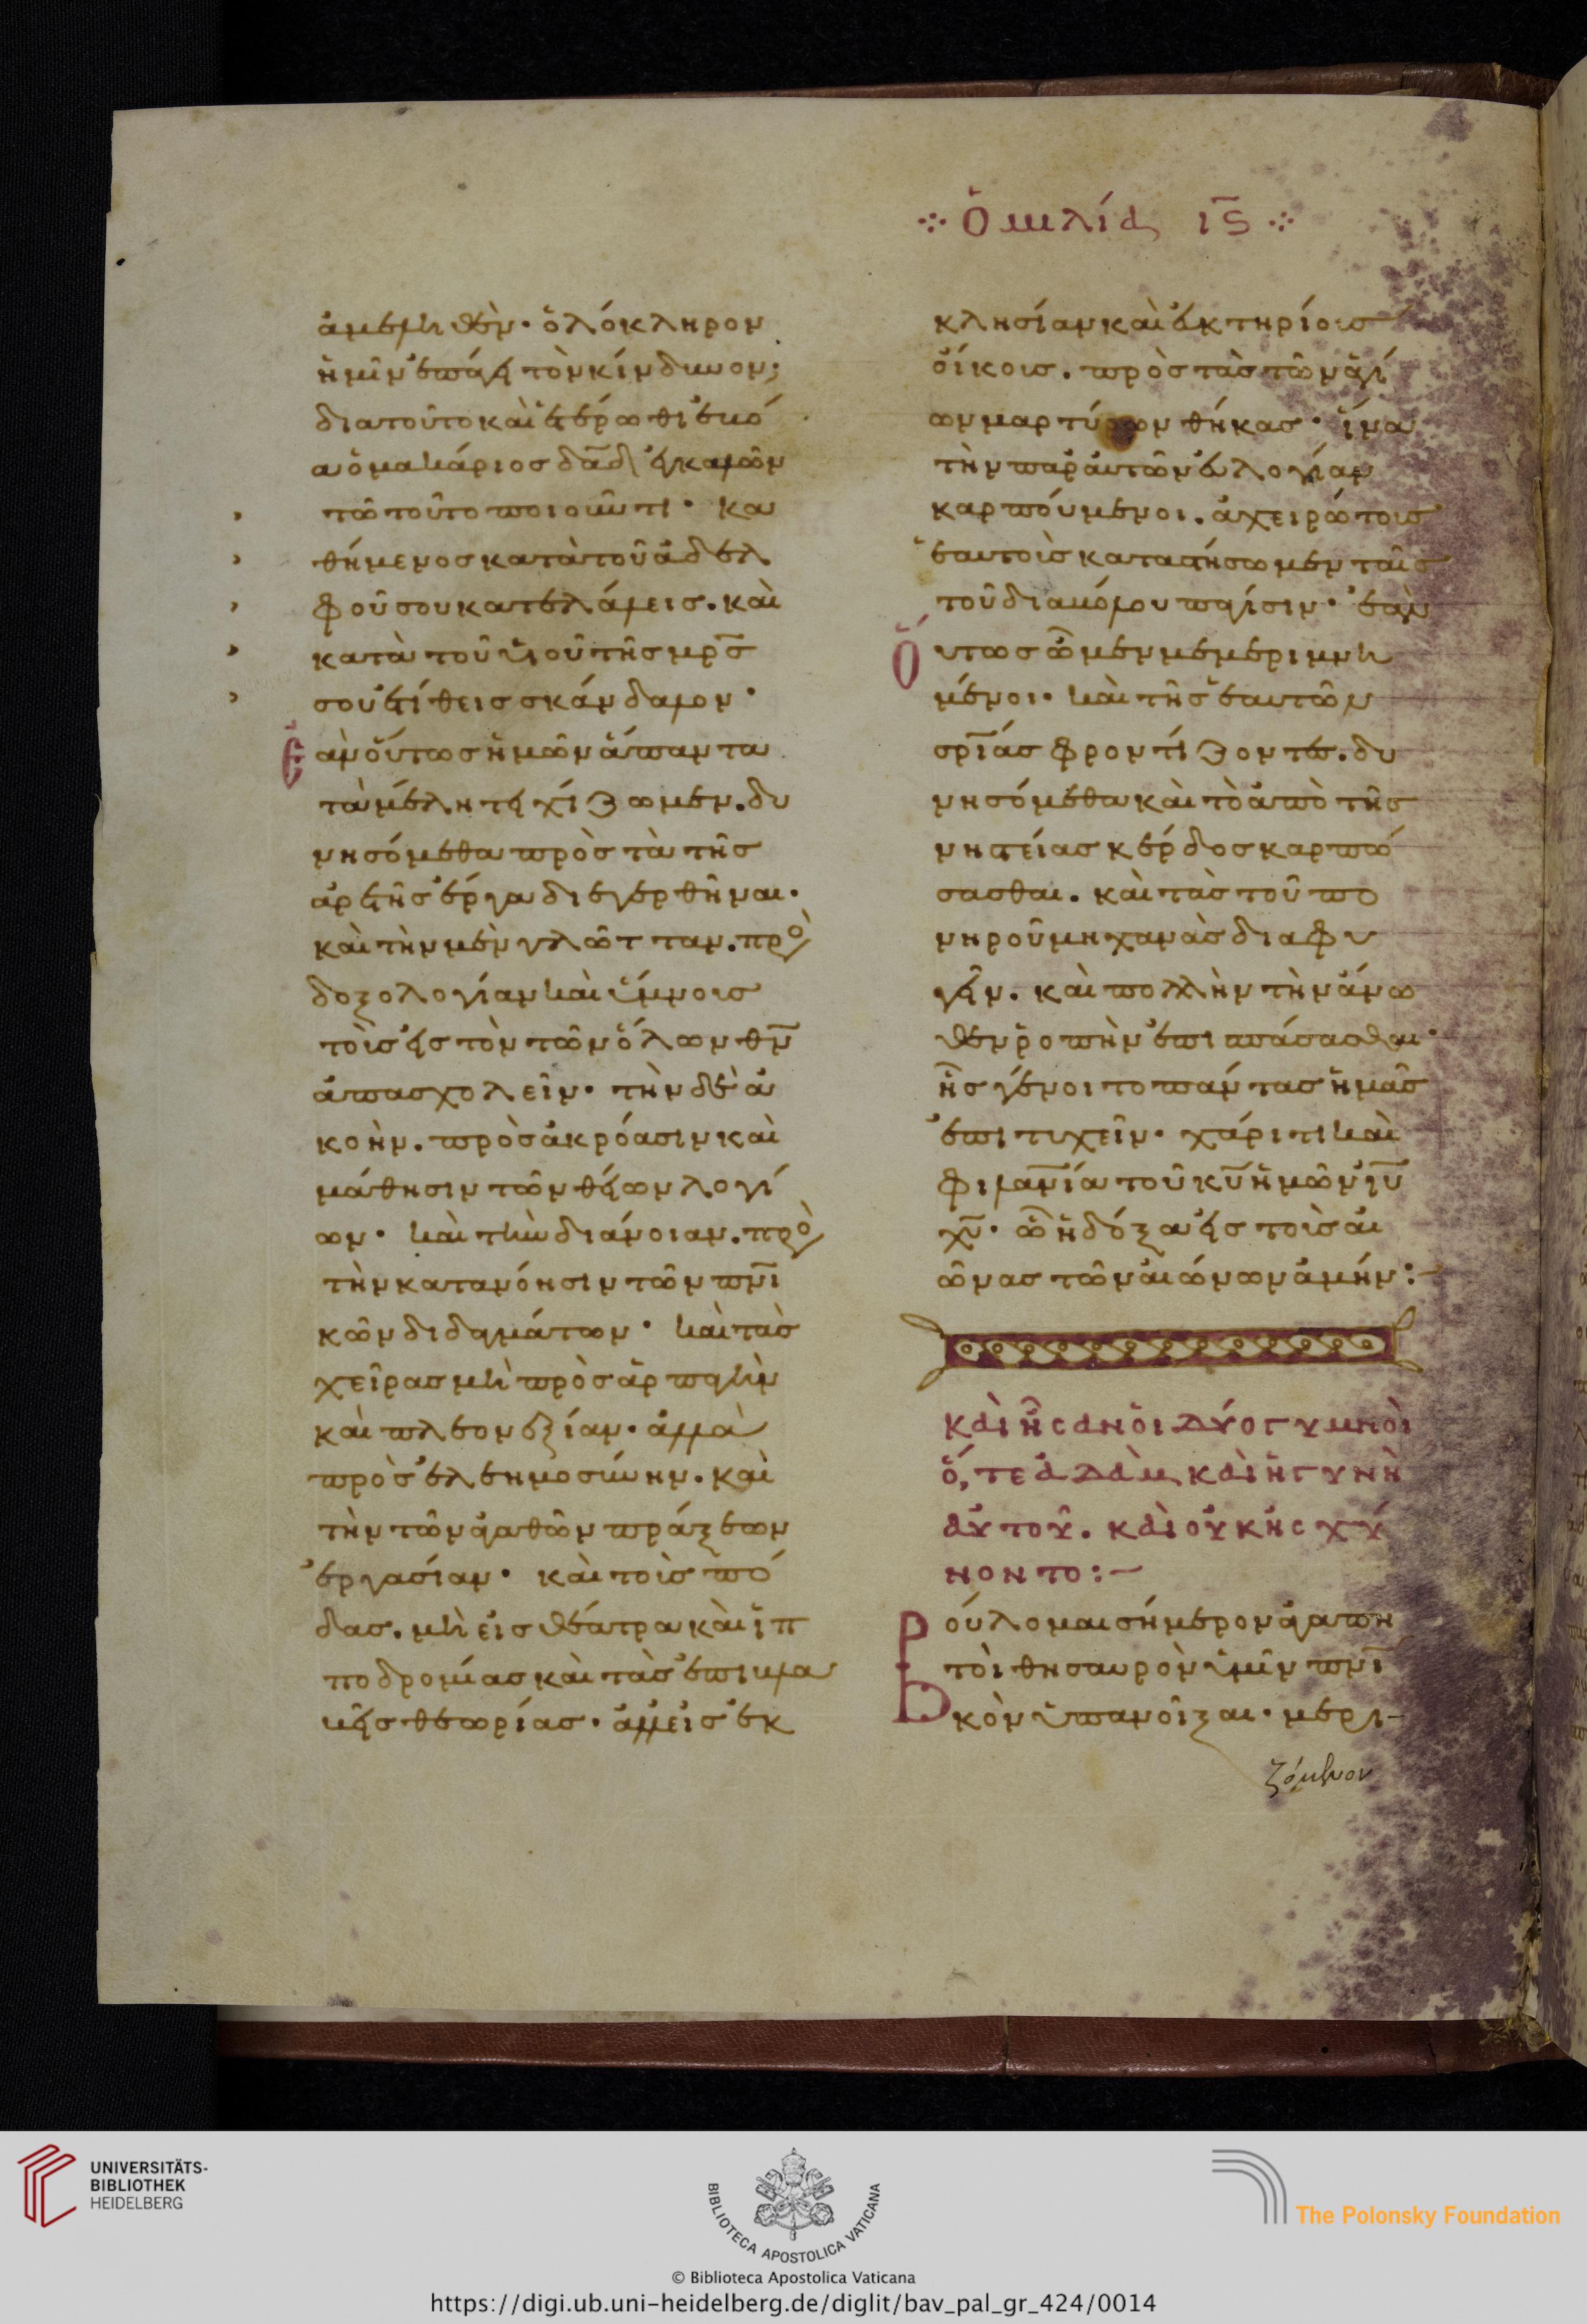 ⁘ Ὁμιλία ιϛ ⁘
ἀμεληθὲν· ὁλόκληρον
ἡμῖν ἐπάγει τὸν κίνδυνον;
διατοῦτο καὶ ἑτέρωθι ἐβό
α ὁ μακάριος δα̅δ ἐγκαλῶν
τῶ τοῦτο ποιοῦντι· κα
θήμενος κατὰ τοῦ ἀδελ
φοῦ σου κατελάλεις. καὶ
κατὰ τοῦ υἱοῦ τῆς μρ̅ς
σου ἐτίθεις σκάνδαλον·
Ἐὰν οὕτως ἡμῶν ἅπαντα
τὰ μέλη τειχίζωμεν. δυ
νησόμεθα πρὸς τὰ τῆς
ἀρετῆς ἔργα διεγερθῆναι.
καὶ τὴν μὲν γλῶτταν. πρὸς
δοξολογίαν καὶ ὕμνους
τοὺς εἰς τὸν τῶν ὅλων θν̅
ἀπασχολεῖν· τὴν δὲ ἀ
κοὴν. πρὸς ἀκρόασιν καὶ
μάθησιν τῶν θείων λογί
ων· καὶ τὴν διάνοιαν. πρὸς
τὴν κατανόησιν τῶν πνι̅
κῶν διδαγμάτων· καὶ τὰς
χεῖρας μὴ πρὸς ἁρπαγὴν
καὶ πλεονεξίαν· ἀλλὰ
πρὸς ἐλεημοσύνην. καὶ
τὴν τῶν ἀγαθῶν πράξεων
ἐργασίαν· καὶ τοὺς πό
δας. μὴ εἰς θέατρα καὶ ἱπ
ποδρομίας καὶ τὰς ἐπιβλα
βεῖς θεωρίας· ἀλλ' εἰς ἐκ
κλησίαν καὶ εὐκτηρίους
οἴκους. πρὸς τὰς τῶν ἁγί
ων μαρτύρων θήκας· ἵνα
τὴν παρ' αὐτῶν εὐλογίαν
καρπούμενοι. ἀχειρώτους
ἑαυτοὺς καταστήσωμεν ταῖς
τοῦ διαβόλου παγίσιν· ἐὰν
Οὕτως ὦμεν μεμεριμνη
μένοι· καὶ τῆς ἑαυτῶν
σρι̅ας φροντίζοντες. δυ
νησόμεθα καὶ τὸ ἀπὸ τῆς
νηστείας κέρδος καρπώ
σασθαι. καὶ τὰς τοῦ πο
νηροῦ μηχανὰς διαφυ
γεῖν. καὶ πολλὴν τὴν ἄνω
θεν ῥοπὴν ἐπισπάσασθαι·
ἧς γένοιτο πάντας ἡμᾶς
ἐπιτυχεῖν· χάριτι καὶ
φιλαν̅ία τοῦ κυ̅ ἡμῶν ἰυ̅
χυ̅· ὧ ἡ δόξα εἰς τοὺς αἰ
ῶνας τῶν αἰώνων ἀμήν:—
καὶ ἦσαν οἱ δύο γυμνοὶ
ὅ, τε ἀδὰμ καὶ ἡ γυνὴ
αὐτοῦ. καὶ οὐκ ἠσχύ
νοντο:—
Βούλομαι σήμερον ἀγαπη
τοὶ θησαυρὸν ὑμῖν πνι̅
κὸν ὑπανοῖξαι· μερι-
ζόμενον
UNIVERSITÄTS-
BIBLIOTHEK
HEIDELBERG
BIBLIOTECA APOSTOLICA VATICANA
The Polonsky Foundation
© Biblioteca Apostolica Vaticana
https://digi.ub.uni-heidelberg.de/diglit/bav_pal_gr_424/0014